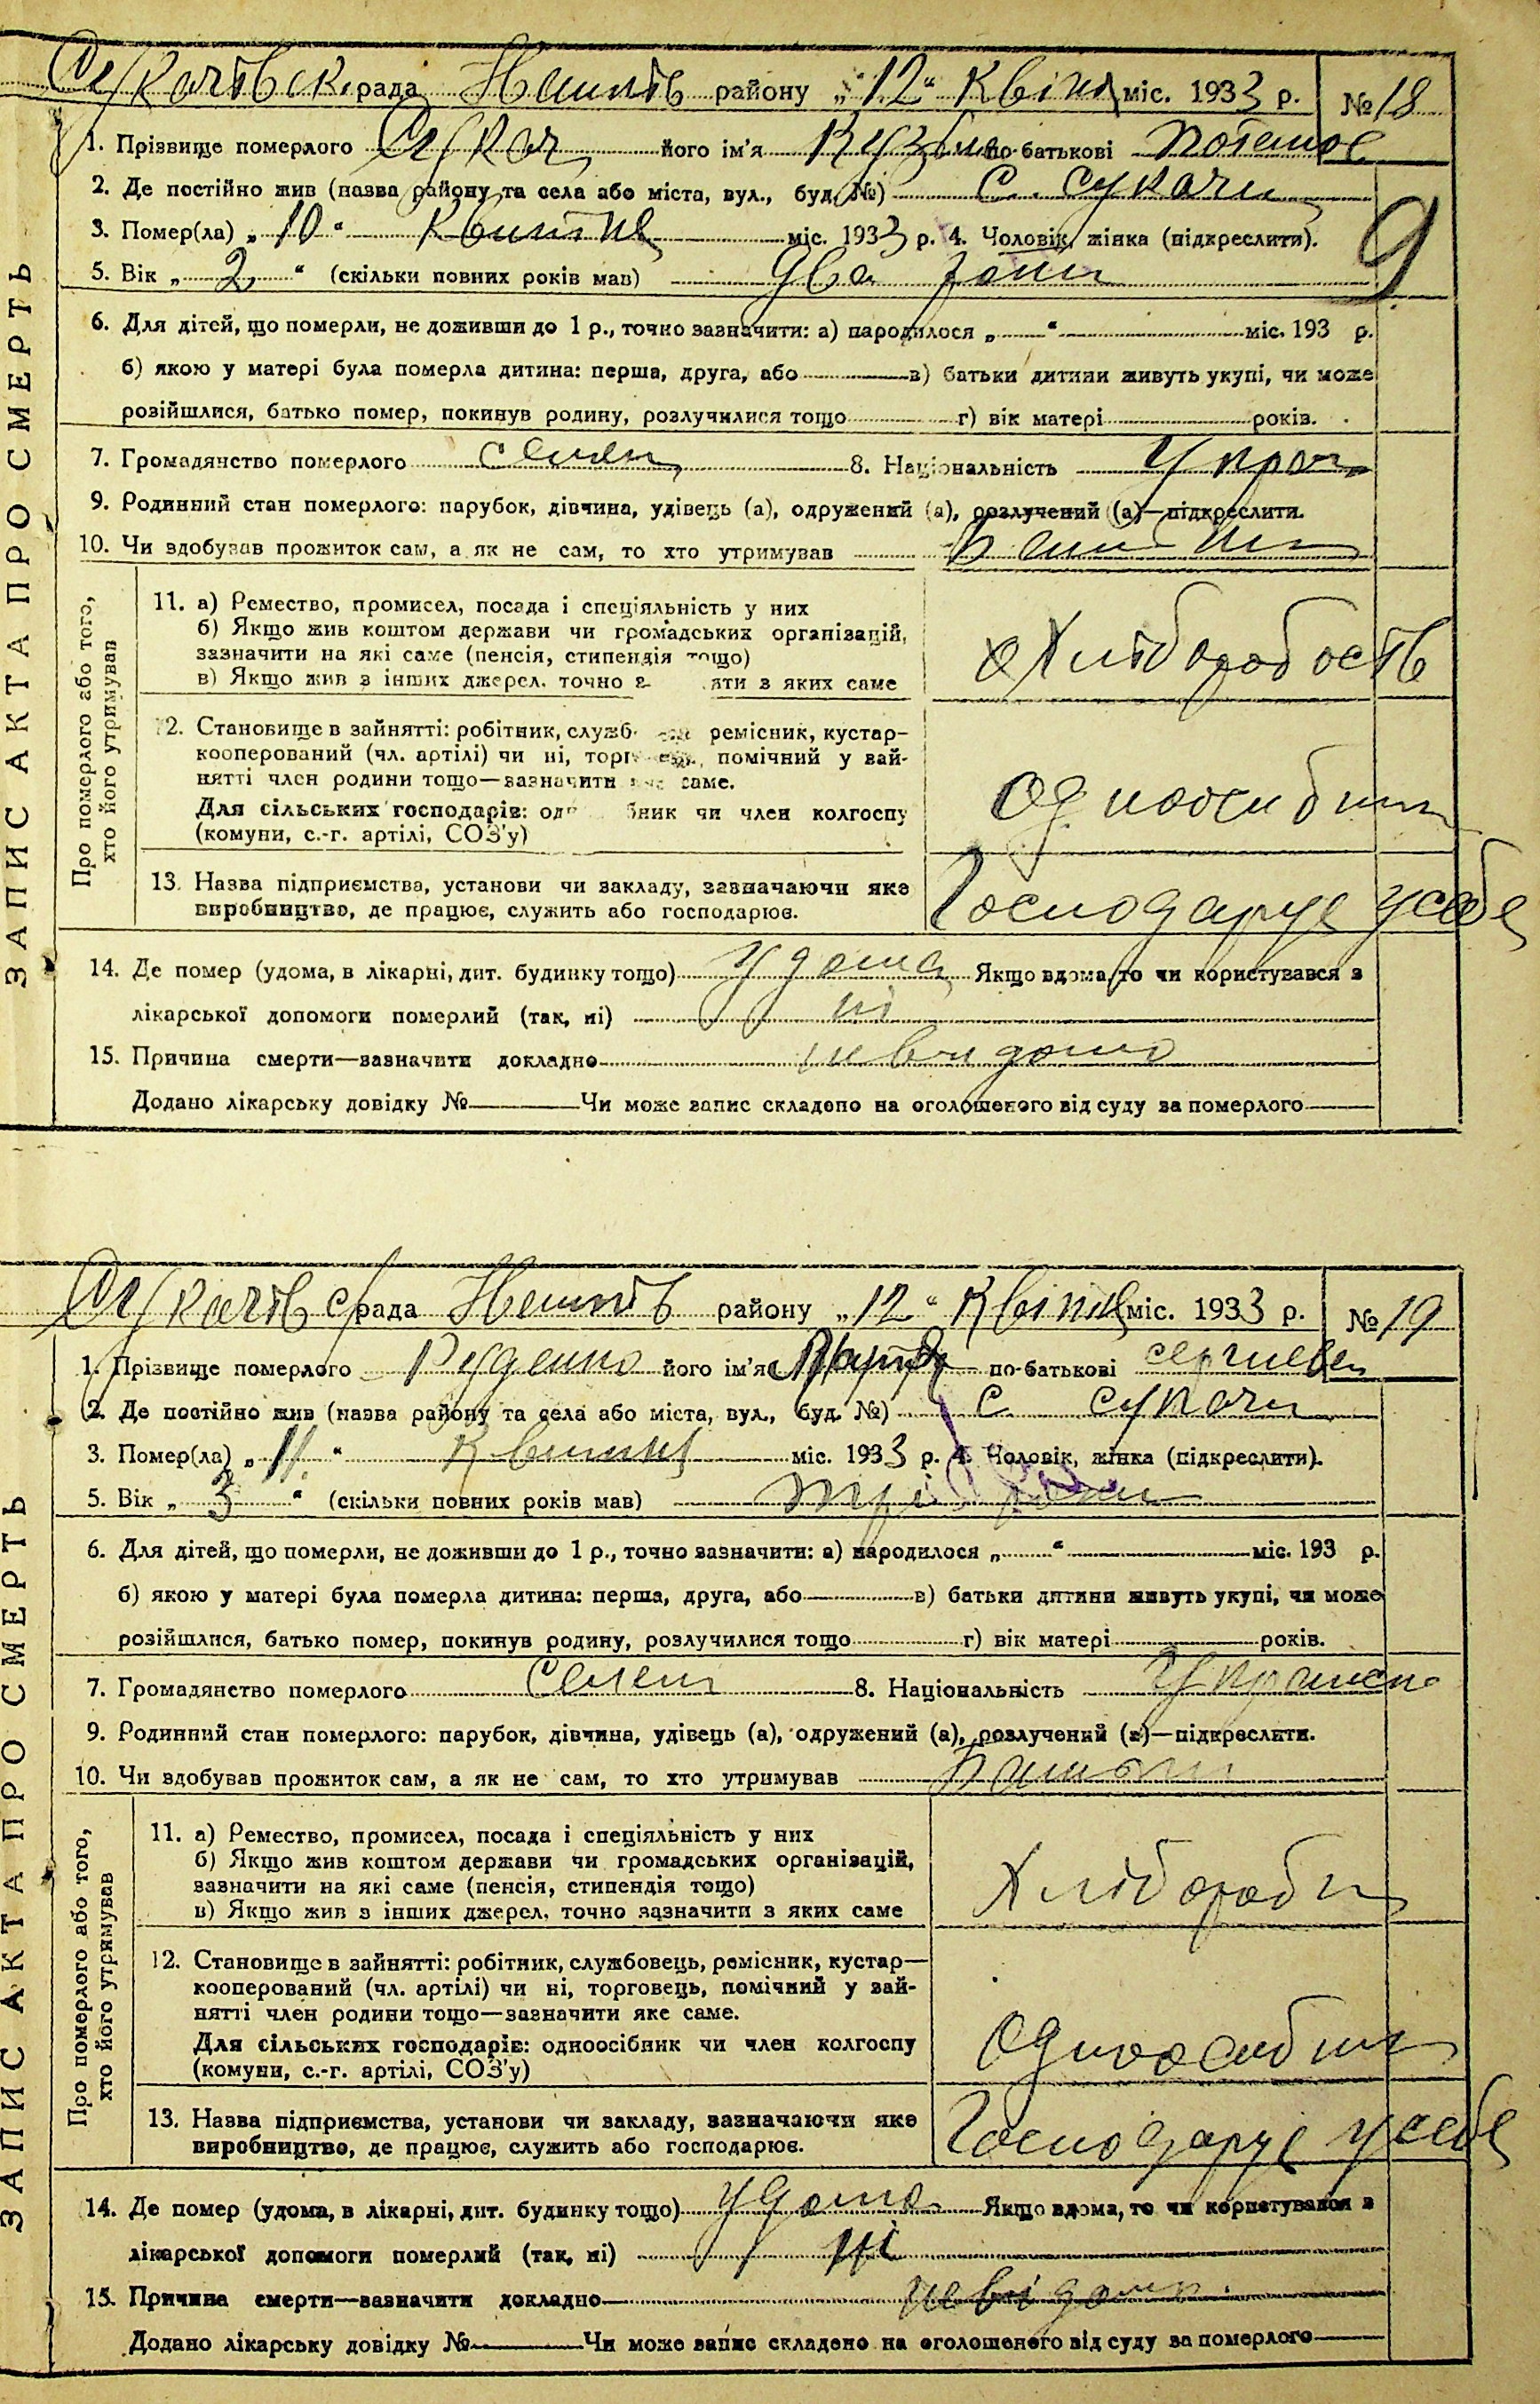 Сукачівск. рада Іванків району „12“ Квітня міс. 1933 р. № 18
1. Прізвище померлого Сукач його ім'я Кузьма по-батькові
2. Де постійно жив (назва району та села або міста, вул., буд. №) С. Сукачи
3. Помер(ла) „10“ Квитня міс. 1933 р. 4. Чоловік, жінка (підкреслити).
9
5. Вік „2“ (скільки повних років мав) два роки
6. Для дітей, що померли, не доживши до 1 р., точно зазначити: а) народилося „ “ міс. 193 р.
б) якою у матері була померла дитина: перша, друга, або в) батьки дитини живуть укупі, чи може
розійшлися, батько помер, покинув родину, розлучилися тощо г) вік матері років.
7. Громадянство померлого 8. Національність Украї
9. Родинний стан померлого: парубок, дівчина, удівець (а), одружений (а), розлучений (а)—підкреслити.
10. Чи здобував прожиток сам, а як не сам, то хто утримував
ЗАПИС АКТА ПРО СМЕРТЬ
Про померлого або того, хто його утримував
11. а) Ремество, промисел, посада і спеціяльність у них
б) Якщо жив коштом держави чи громадських організацій,
зазначити на які саме (пенсія, стипендія тощо)
в) Якщо жив з інших джерел, точно з яти з яких саме
Хліборобств
12. Становище в зайнятті: робітник, служб ремісник, кустар—
кооперований (чл. артілі) чи ні, торг помічний у зай-
нятті член родини тощо—зазначити яке саме.
Для сільських господарів: од бник чи член колгоспу
(комуни, с.-г. артілі, СОЗ'у)
Одноосибник
13. Назва підприємства, установи чи закладу, зазначаючи яке
виробництво, де працює, служить або господарює.
Господарує усебе
14. Де помер (удома, в лікарні, дит. будинку тощо) удома Якщо вдома, то чи користувався з
лікарської допомоги померлий (так, ні) ні
15. Причина смерти—зазначити докладно невидомо
Додано лікарську довідку № Чи може запис складено на оголошеного від суду за померлого
Сукачівс рада Іванків району „12“ Квітня міс. 1933 р. № 19
1. Прізвище померлого Руденко його ім'я по-батькові
2. Де постійно жив (назва району та села або міста, вул., буд. №) С Сукачи
3. Помер(ла) „11“ Квитня міс. 1933 р. 4. Чоловік, жінка (підкреслити).
5. Вік „3“ (скільки повних років мав) три роки
6. Для дітей, що померли, не доживши до 1 р., точно зазначити: а) народилося „ “ міс. 193 р.
б) якою у матері була померла дитина: перша, друга, або в) батьки дитини живуть укупі, чи може
розійшлися, батько помер, покинув родину, розлучилися тощо г) вік матері років.
7. Громадянство померлого 8. Національність
9. Родинний стан померлого: парубок, дівчина, удівець (а), одружений (а), розлучений (а)—підкреслити.
10. Чи здобував прожиток сам, а як не сам, то хто утримував
ЗАПИС АКТА ПРО СМЕРТЬ
Про померлого або того, хто його утримував
11. а) Ремество, промисел, посада і спеціяльність у них
б) Якщо жив коштом держави чи громадських організацій,
зазначити на які саме (пенсія, стипендія тощо)
в) Якщо жив з інших джерел, точно зазначити з яких саме
Хлібороби
12. Становище в зайнятті: робітник, службовець, ремісник, кустар—
кооперований (чл. артілі) чи ні, торговець, помічний у зай-
нятті член родини тощо—зазначити яке саме.
Для сільських господарів: одноосібник чи член колгоспу
(комуни, с.-г. артілі, СОЗ'у)
Одноосибник
13. Назва підприємства, установи чи закладу, зазначаючи яке
виробництво, де працює, служить або господарює.
Господарує усебе
14. Де помер (удома, в лікарні, дит. будинку тощо) удома Якщо вдома, то чи користувався з
лікарської допомоги померлий (так, ні) ні
15. Причина смерти—зазначити докладно невідомо
Додано лікарську довідку № Чи може запис складено на оголошеного від суду за померлого